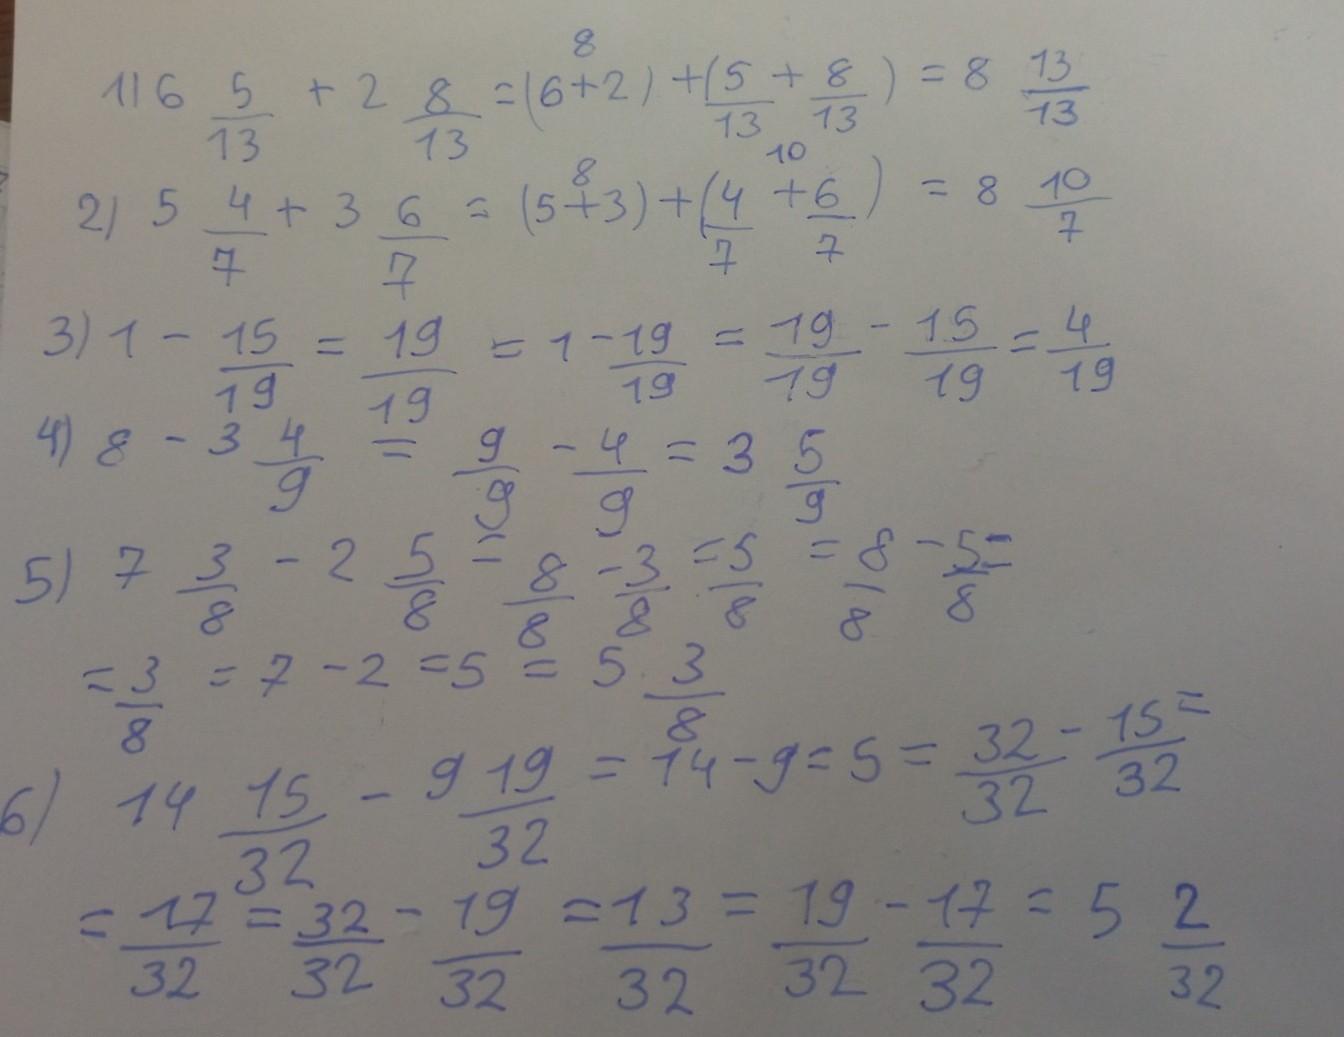 1) 6 5/13 + 2 8/13 = (6+2) + (5/13 + 8/13) = 8 13/13
8
2) 5 4/7 + 3 6/7 = (5+3) + (4/7 + 6/7) = 8 10/7
8 10
3) 1 - 15/19 = 19/19 = 1 - 19/19 = 19/19 - 15/19 = 4/19
4) 8 - 3 4/9 = 9/9 - 4/9 = 3 5/9
5) 7 3/8 - 2 5/8 = 8/8 - 3/8 = 5/8 = 8/8 - 5/8 =
= 3/8 = 7 - 2 = 5 = 5 3/8
6) 14 15/32 - 9 19/32 = 14 - 9 = 5 = 32/32 - 15/32 =
= 17/32 = 32/32 - 19/32 = 13/32 = 19/32 - 17/32 = 5 2/32